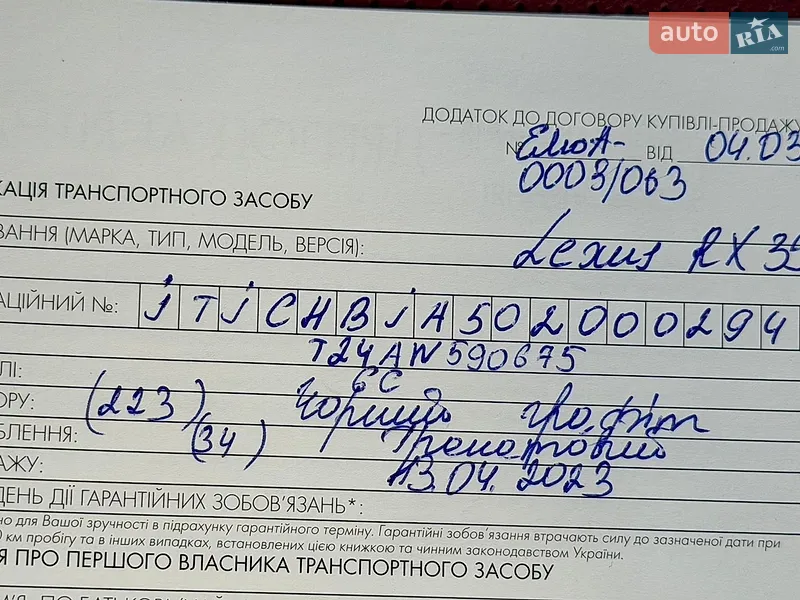 auto RIA.com
ДОДАТОК ДО ДОГОВОРУ КУПІВЛІ-ПРОДАЖУ
№ ЕлюА- ВІД 04.03
0003/063
КАЦІЯ ТРАНСПОРТНОГО ЗАСОБУ
ВАННЯ (МАРКА, ТИП, МОДЕЛЬ, ВЕРСІЯ): Lexus RX 35
АЦІЙНИЙ №: JTJCHBJA502000294
T24AN590675
ЛІ: 6C
ОРУ: (223) Чорний графіт
БЛЕННЯ: (34)
АЖУ: 13.04.2023
ДЕНЬ ДІЇ ГАРАНТІЙНИХ ЗОБОВ'ЯЗАНЬ*:
но для Вашої зручності в підрахунку гарантійного терміну. Гарантійні зобов'язання втрачають силу до зазначеної дати при
0 км пробігу та в інших випадках, встановлених цією книжкою та чинним законодавством України.
Я ПРО ПЕРШОГО ВЛАСНИКА ТРАНСПОРТНОГО ЗАСОБУ